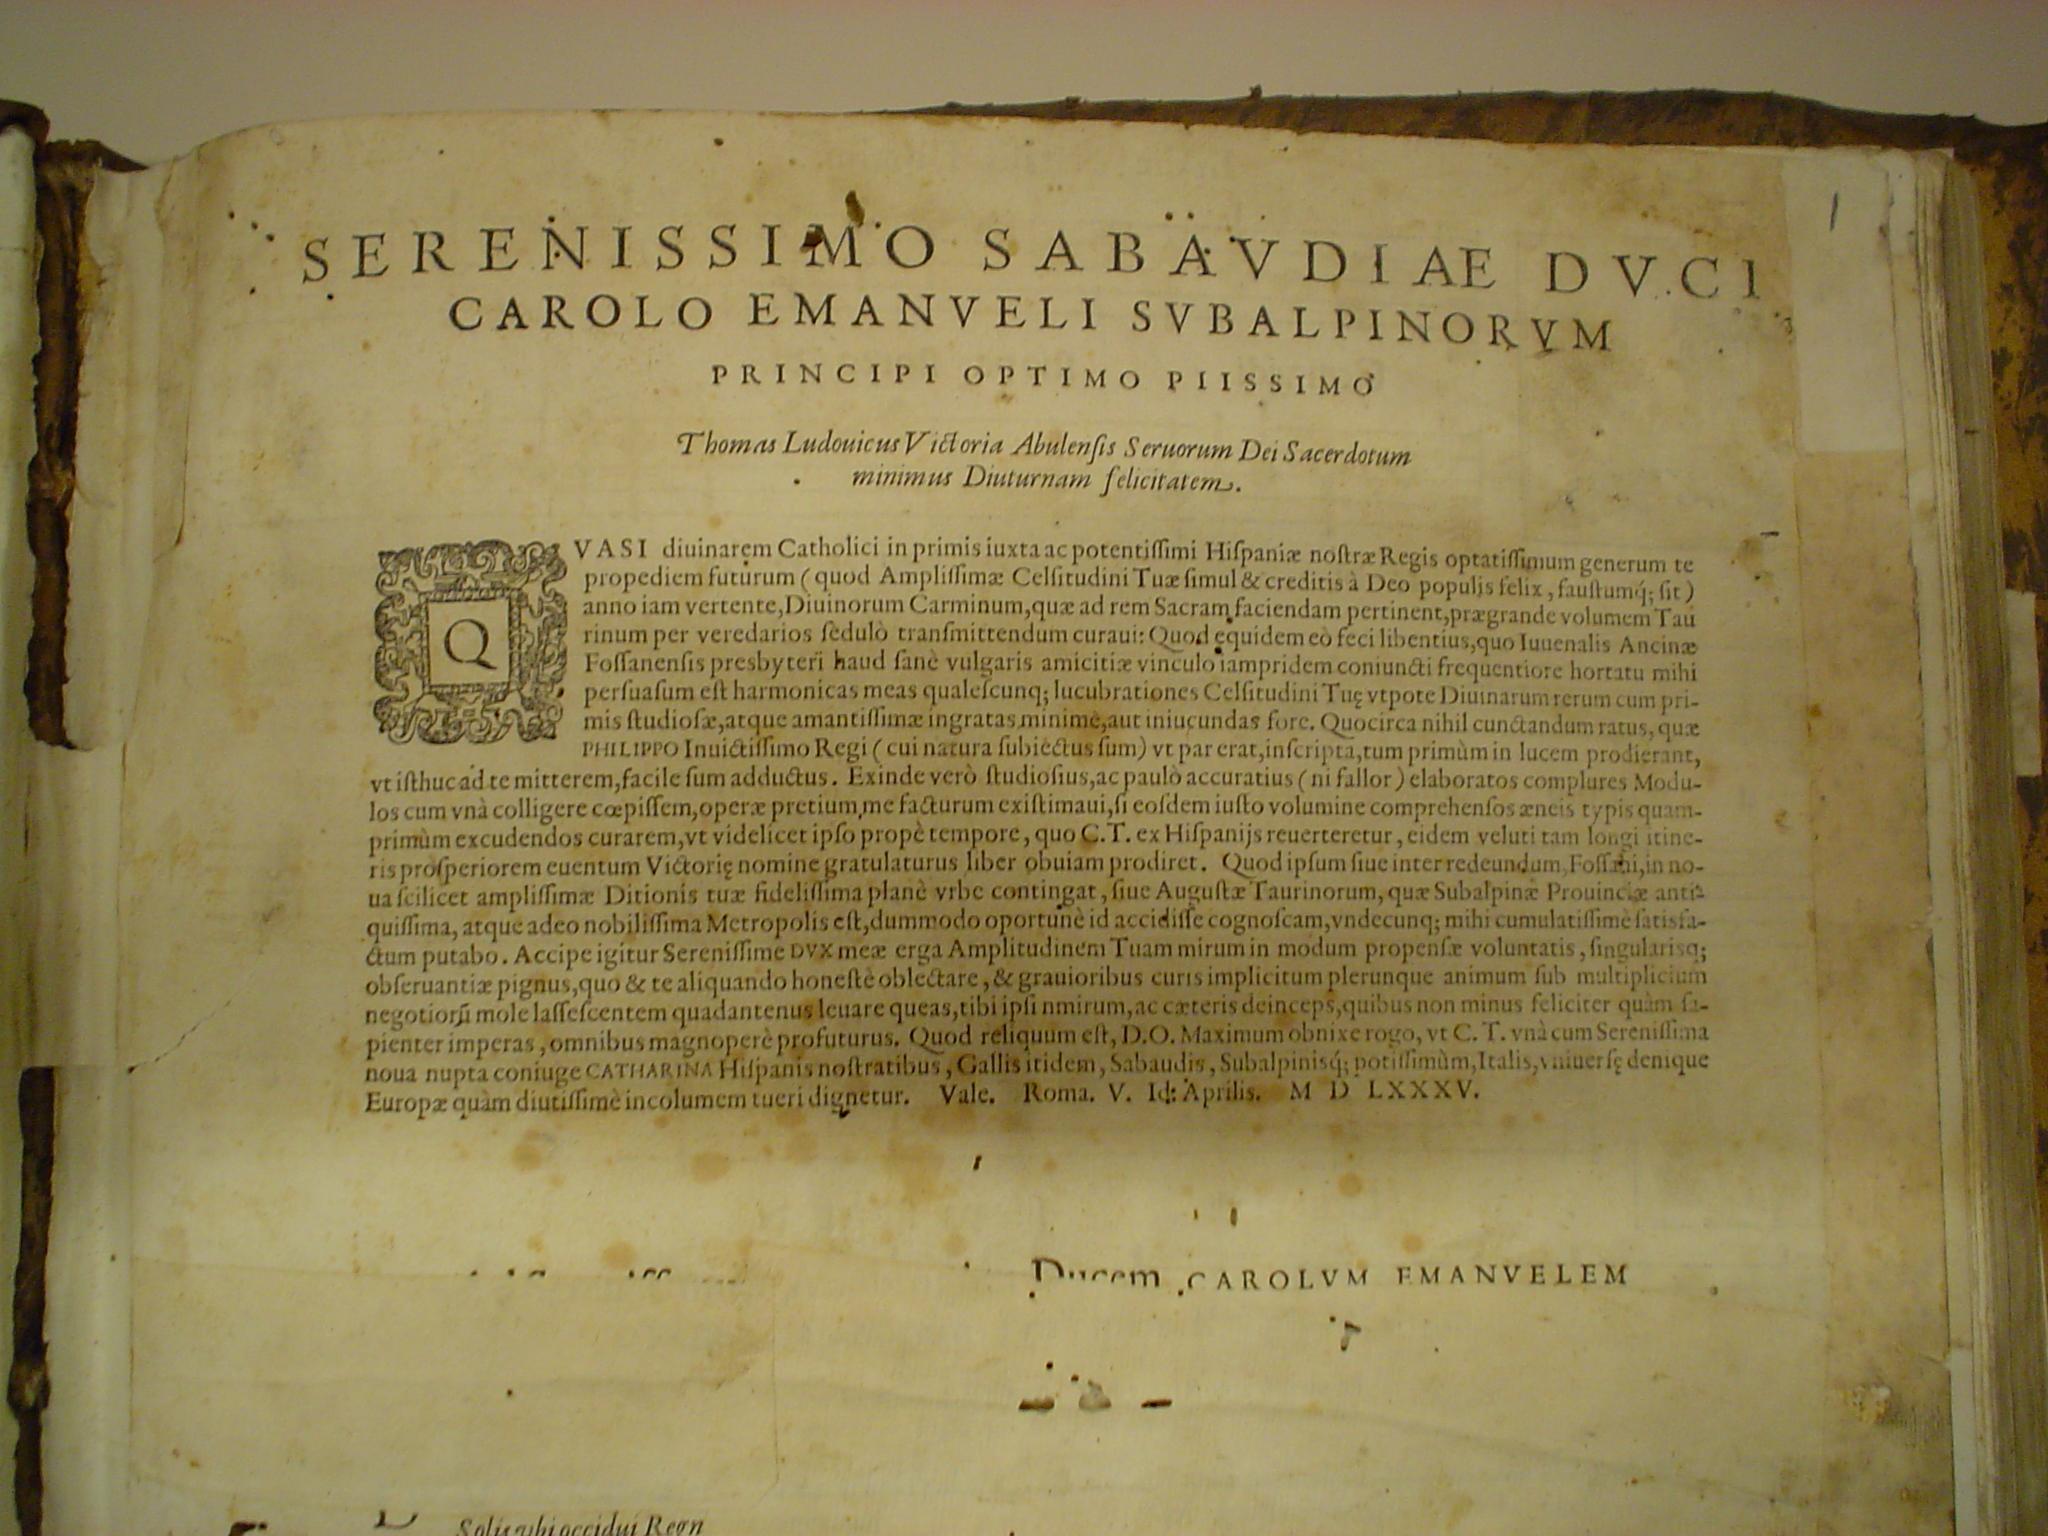 1
SERENISSIMO SABAVDIAE DVCI
CAROLO EMANVELI SVBALPINORVM
PRINCIPI OPTIMO PIISSIMO
Thomas Ludouicus Victoria Abulenſis Seruorum Dei Sacerdotum
minimus Diuturnam felicitatem.
QVASI diuinarem Catholici in primis iuxta ac potentiſſimi Hiſpaniæ noſtræ Regis optatiſſimum generum te
propediem futurum (quod Ampliſſimæ Celſitudini Tuæ ſimul & creditis à Deo populis felix, fauſtumq́; ſit)
anno iam vertente, Diuinorum Carminum, quæ ad rem Sacram faciendam pertinent, prægrande volumem Tau
rinum per veredarios ſedulò tranſmittendum curaui: Quod equidem eò feci libentius, quo Iuuenalis Ancinæ
Foſſanenſis presbyteri haud ſanè vulgaris amicitiæ vinculo iampridem coniuncti frequentiore hortatu mihi
perſuaſum eſt harmonicas meas qualeſcunq; lucubrationes Celſitudini Tuę vtpote Diuinarum rerum cum pri-
mis ſtudioſæ, atque amantiſſimæ ingratas minimè, aut iniucundas fore. Quocirca nihil cunctandum ratus, quæ
PHILIPPO Inuictiſſimo Regi (cui natura ſubiectus ſum) vt par erat, inſcripta, tum primùm in lucem prodierant,
vt iſthuc ad te mitterem, facile ſum adductus. Exinde verò ſtudioſius, ac paulò accuratius (ni fallor) elaboratos complures Modu-
los cum vnà colligere cœpiſſem, operæ pretium me facturum exiſtimaui, ſi eoſdem iuſto volumine comprehenſos æneis typis quam-
primùm excudendos curarem, vt videlicet ipſo propè tempore, quo C.T. ex Hiſpanijs reuerteretur, eidem veluti tam longi itine-
ris proſperiorem euentum Victorię nomine gratulaturus liber obuiam prodiret. Quod ipſum ſiue inter redeundum, Foſſani, in no-
ua ſcilicet ampliſſimæ Ditionis tuæ fideliſſima planè vrbe contingat, ſiue Auguſtæ Taurinorum, quæ Subalpinæ Prouinciæ anti-
quiſſima, atque adeo nobiliſſima Metropolis eſt, dummodo oportunè id accidiſſe cognoſcam, vndecunq; mihi cumulatiſſimè ſatisfa-
ctum putabo. Accipe igitur Sereniſſime DVX meæ erga Amplitudinem Tuam mirum in modum propenſæ voluntatis, ſingularisq;
obſeruantiæ pignus, quo & te aliquando honeſtè oblectare, & grauioribus curis implicitum plerunque animum ſub multiplicium
negotiorū mole laſſeſcentem quadantenus leuare queas, tibi ipſi nmirum, ac cæteris deinceps, quibus non minus feliciter quàm ſa-
pienter imperas, omnibus magnoperè profuturus. Quod reliquum eſt, D.O. Maximum obnixe rogo, vt C. T. vnà cum Sereniſſima
noua nupta coniuge CATHARINA Hiſpanis noſtratibus, Gallis itidem, Sabaudis, Subalpinisq́; potiſſimùm, Italis, vniuerſę denique
Europæ quàm diutiſſimè incolumem tueri dignetur. Vale. Roma. V. Id: Aprilis. M D LXXXV.
Ducem CAROLVM EMANVELEM
Solis vbi occidui Regn